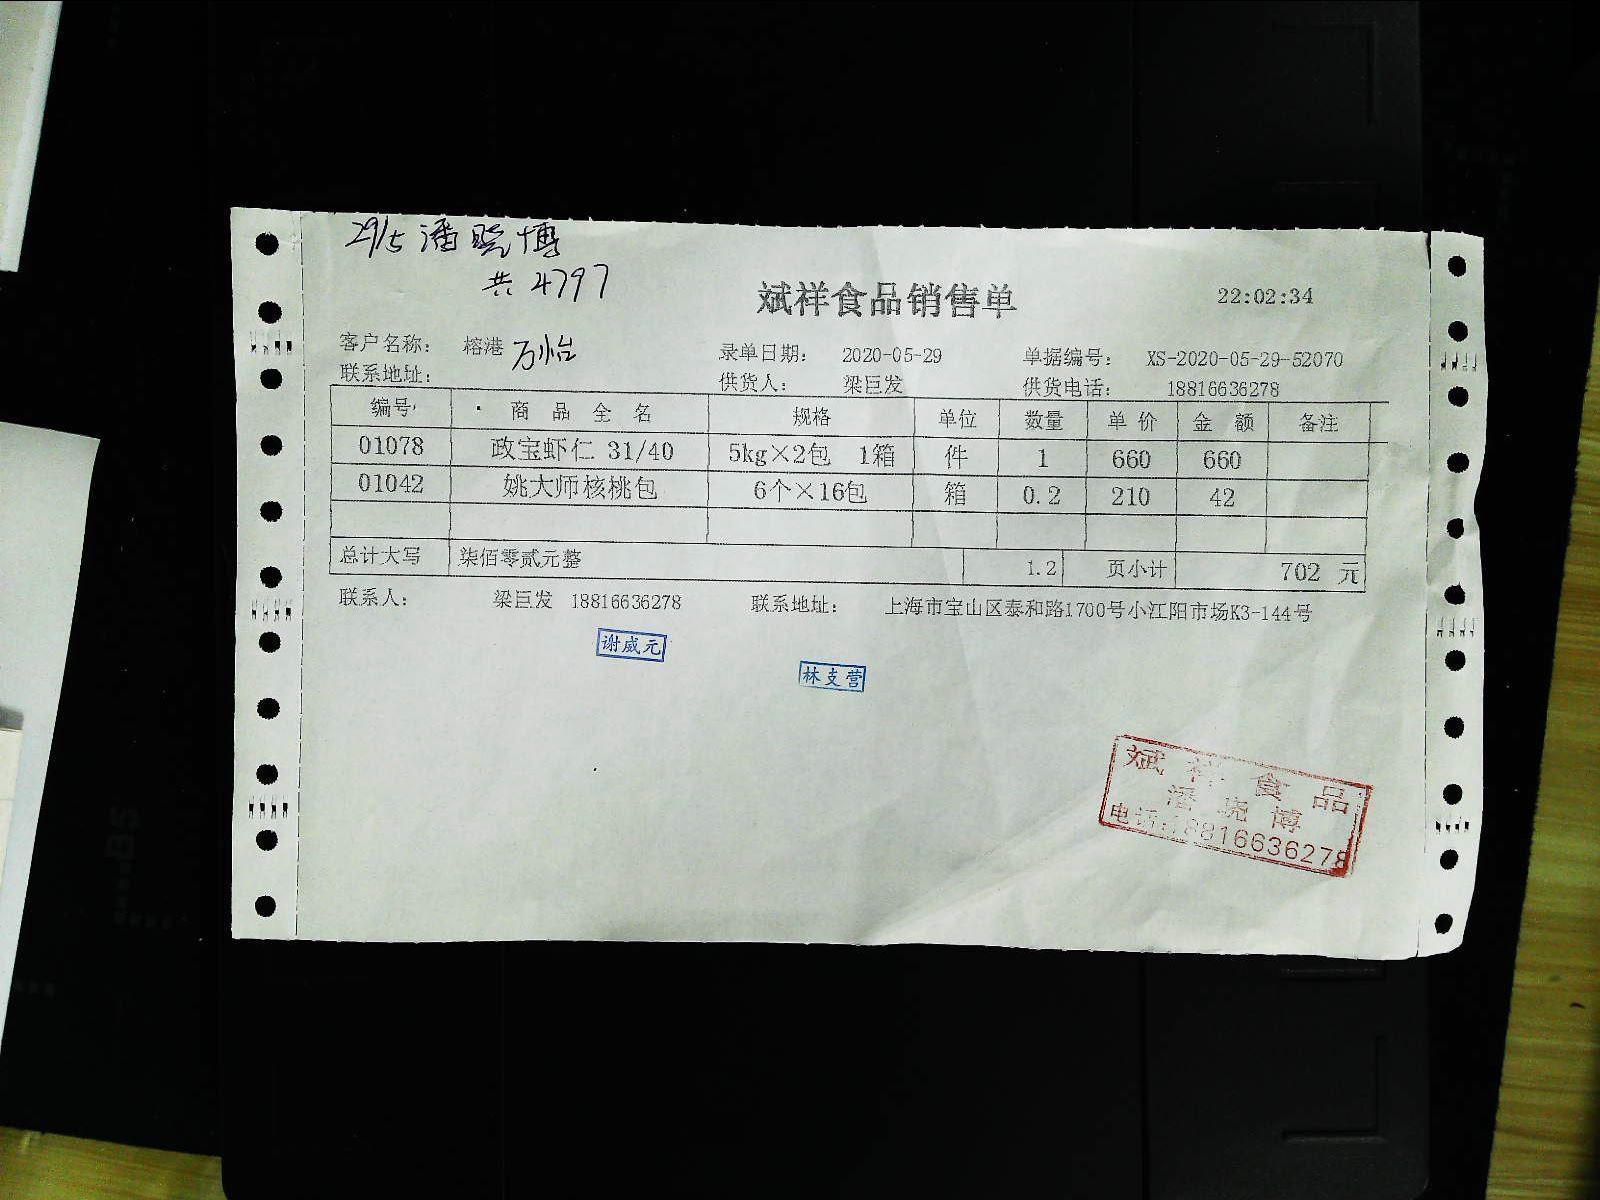 29/5 潘晓博
共 4797
斌祥食品销售单 22:02:34
客户名称: 榕港 万怡 录单日期: 2020-05-29 单据编号: XS-2020-05-29-52070
联系地址: 供货人: 梁巨发 供货电话: 18816636278
编号 商品全名 规格 单位 数量 单价 金额 备注
01078 政宝虾仁 31/40 5kg×2包 1箱 件 1 660 660
01042 姚大师核桃包 6个×16包 箱 0.2 210 42
总计大写 柒佰零贰元整 1.2 页小计 702 元
联系人: 梁巨发 18816636278 联系地址: 上海市宝山区泰和路1700号小江阳市场K3-144号
谢威元
林支营
斌祥食品
潘晓博
电话:18816636278